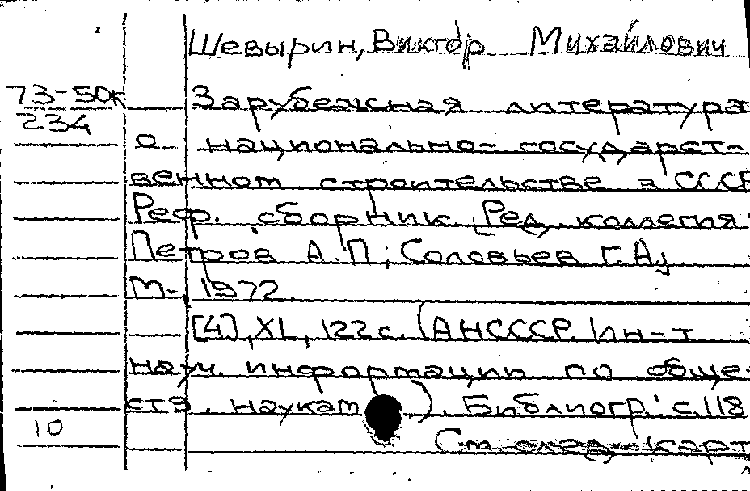 Шевырин, Виктор Михайлович
73-50к Зарубежная литература
234 о национально-государст-
венном строительстве в СССР
Реф. сборник [Ред. коллегия:
Петров А.П; Соловьев Г.А,
М-, 1972
[4], XL, 122 с. (АН СССР. Ин-т
науч. информации по обще-
ств. наукам). Библиогр: с. 118
10 См след карт